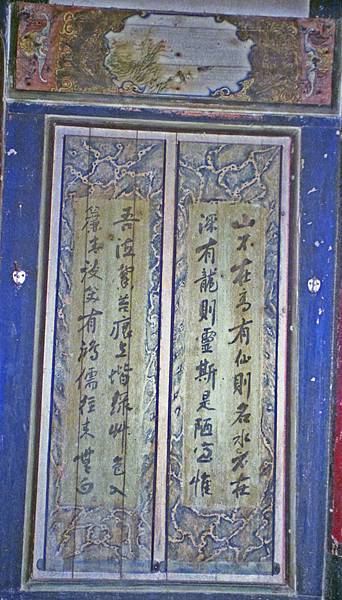 山不在高有仙則名水不在
深有龍則靈斯是陋室惟
吾德馨苔痕上堦綠艸色入
簾青談笑有鴻儒往來無白